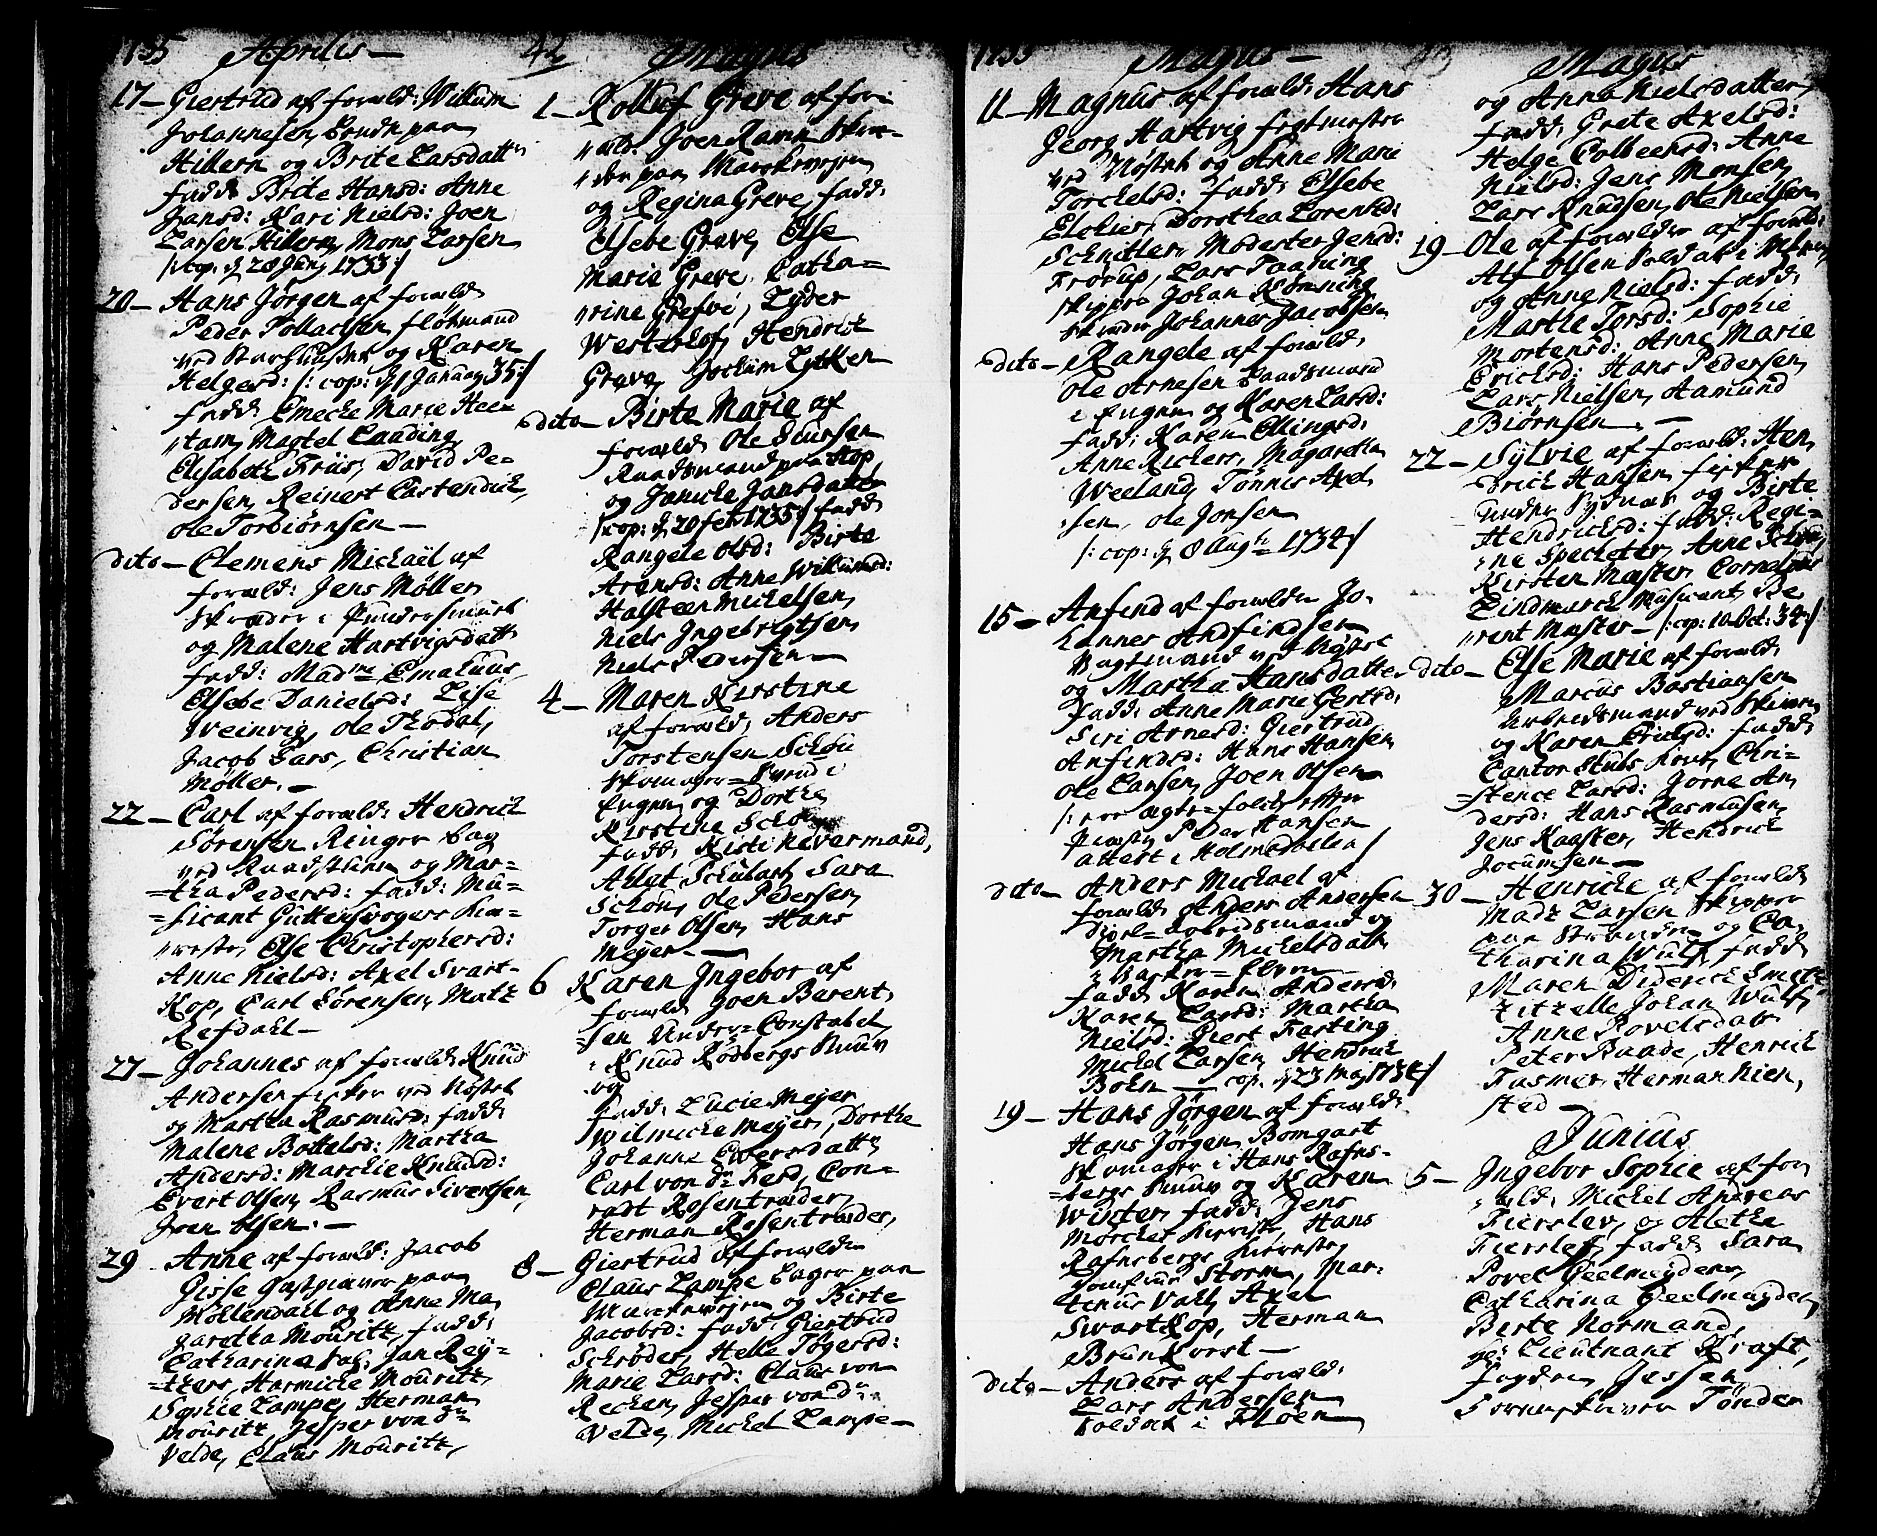 1735 Aprilis —
17 — Giertrud af foræld: Willum
Johannesen, bonde paa
Hillern og Brite Larsdattr
fadd: Brite Hansd: Anne
Jansd: Kari Nielsd: Joen
Larsen Hillern, Mons Larsen
/: cop. d 28 Junj 1733 :/
20 — Hans Jørgen af foræld:
Peder Pollacksen fløtmand
ved og Karen
Helgesd: /: cop: d 1 Januar 35 :/
fadd: Emecke Marie Hee-
stam, Magtel Laading
Elisabeth Friis, David Pe-
dersen, Reinert Carstendick,
Ole Torbiørnsen —
dito — Clemens Michaël af
foræld: Jens Møller
Skræder i Pundersmuet
og Malene Hartvigsdatt:
fadd: Madme Emahuus,
Elsebe Danielsd: Lise
Weinvig, Ole Thodal,
Jacob Lars, Christian
Møller. —
22 — Carl af foræld: Hendrich
Sørensen Ringer bag
ved Raadstuen og Mar-
tha Pedersd: fadd: Mu-
sicant Guttensvogers
Else Christophersd:
Anne Nielsd: Axel Svart-
Kop, Carl Sørensen, Matz
Refdahl —
27 — Johannes af foræld: Knud
Andersen fisker ved Nøstet
og Martha Rasmusd: fadd:
Malene Bottelsd: Martha
Andersd: Marchie Knudsd:
Evert Olsen, Rasmus Sivertsen,
Joen Olsen. —
29 Anne af foræld: Jacob
Gisse paa
Möllendahl og Anne Ma
garetha Mouritz, fadd:
Catharina Jan Rey-
tzers, Harmiche Mouritz,
Sophie Lampe, Herman
Mouritz, Jesper von dr
Velde, Claus Mouritz,
42 Majus
1 — Rolluf Greve af for-
æld: Joen Ramn
paa Marckeveyen
og Regina Greve, fadd:
Elsebe Greve, Else
Marie Greve, Catha-
rine Grefve, Lyder
Westerhof, Hendrich
Greve, Jochum Lycken
dito — Birte Marie af
foræld: Ole Siursen
Raadsmand paa
og Janicke Jansdatter
/: cop: d 20 feb 1735 :/ fadd:
Rangele Olsd: Birte
Arensd: Anne Willumsd:
Halsteen Michelsen,
Niels Ingebrigtsen,
Niels Pedersen —
4 — Maren Kirstine
af foræld: Anders
Torstensen Schøn
Skomager-Svend i
Engen, og Dorthe
Kirstine Schøn
fadd: Kisti Nevermand,
Ahlet Schubart, Sara
Schøn, Ole Pedersen,
Torger Olsen, Hans
Meyer. —
6 Karen Ingebor af
foræld: Joen Berent-
sen Under-Constabel
i Knud Rødbergs Smuw
og
fadd: Lucie Meyer
Wilmicke Meyer, Dorthe
Johanne Everdsdattr
Carl von dr Ferd, Con-
radt Rosentræder,
Herman Rosentræder,
8 — Giertrud af forældre
Claus Lampe bager paa
Marckeveyen og Birte
Jacobsd: fadd: Giertrud
Schrøder, Helle Tøgersd:
Marie Larsd: Claus von
Recken, Jesper von dr
Velde, Michel Lampe —
1735 Majus —
11 — Magnus af foræld: Hans
Georg Hartvig
ved Nøstet og Anne Marie
Torchelsd: fadd: Elsebe
Elohier, Dorothea Lorentzd:
Schnitler, Modester Jensd:
Frorup, Lars Taaning
Skipper Johan Römning
Skræder Johannes Jacobsen
dito — Rangele af foræld:
Ole Arnesen Raadsmand
i Engen og Karen Larsd:
fadd: Karen Ellingsd:
Anne Rickers, Magaretha
Weeland, Tönnis Axel
sen, Ole Jonsen
/: cop: d 8 Augti 1734 :/
15 — Anfind af forældre Jo-
hannes Andfindsen
Vagtmand ved Nøstet
og Martha Hansdatter
fadd: Anne Marie Gertsd:
Siri Arnesd: Giertrud
Anfindsd: Hans Hansen,
Ole Larsen, Joen Olsen
/: ere ægte-folck efter
Peder Hansen
attest i Holmedalen :/
dito — Anders Michael af
foræld: Anders Andersen
og
Martha Michelsdattr
i
fadd: Karen Andersd:
Karen Larsd: Martha
Nielsd: Giert Farting
Michel Larsen, Hendrich
Bohn — cop. d 23 Maj 1734 :/
19 — Hans Jørgen af foræld:
Hans Jørgen Bomgart
Skomager i Hans Rafns-
bergs Smuw og Karen
Winter, fadd: Jens
Morchet Hans
Rafnsbergs
Storm, Mar-
tinus Vall, Axel
Svartkop, Herman
Brunkorst —
dito — Anders af foræld:
Lars Andersen
Soldat i Floen
Majus
og Anne Nielsdatter,
fadd: Grete Axelsd:
Helge Colbeensd: Anne
Nielsd: Jens Monsen,
Lars Knudsen, Ole Nielsen
19 — Ole af forældre af foræld:
Alf Olsen Soldat i
og Anne Nielsd: fadd:
Marthe Torsd: Sophie
Mortensd: Anne Marie
Ericksd: Hans Pedersen,
Lars Nielsen, Aamund
Biørnsen. —
22 — Sylvie af foræld: Hen
drich Hansen fisker
under Sydnæs og Birte
Hendrichsd: fadd: Regi-
ne Specketer, Anne
Kirsten Mester, Cornelius
Lindmarck Musicant, Be
rent Mæster — /: cop: 10 Oct: 34 :/
dito — Else Marie af foræld:
Marcus Bastiansen
Arbeidsmand ved
og Karen Erichsd: fadd:
Cantor Stubs Kone, Chri-
stence Larsd: Jorne An-
dersd: Hans Rasmusen,
Jens Kaaster, Hendrich
Jocumsen —
30 — Henriche af foræld:
Madz Larsen Skipper
paa Stranden og Ca-
tharina Wulf, fadd:
Maren Diderich Smetz
Zitzelle Johan Wulfs,
Anne Povelsdattr
Peter Baade, Henrich
Fasmer, Herman Nien-
sted —
Junius
5 — Ingebor Sophie af for
æld: Michel Andreas
Fierslev, og Alethe
Fierslef, fadd: Sara
Povel Geelmeyden,
Catharina Geelmeyden,
Berte Normand,
Lieutnant Kraft,
fogden Jessen,
Sorenskriver Tønder